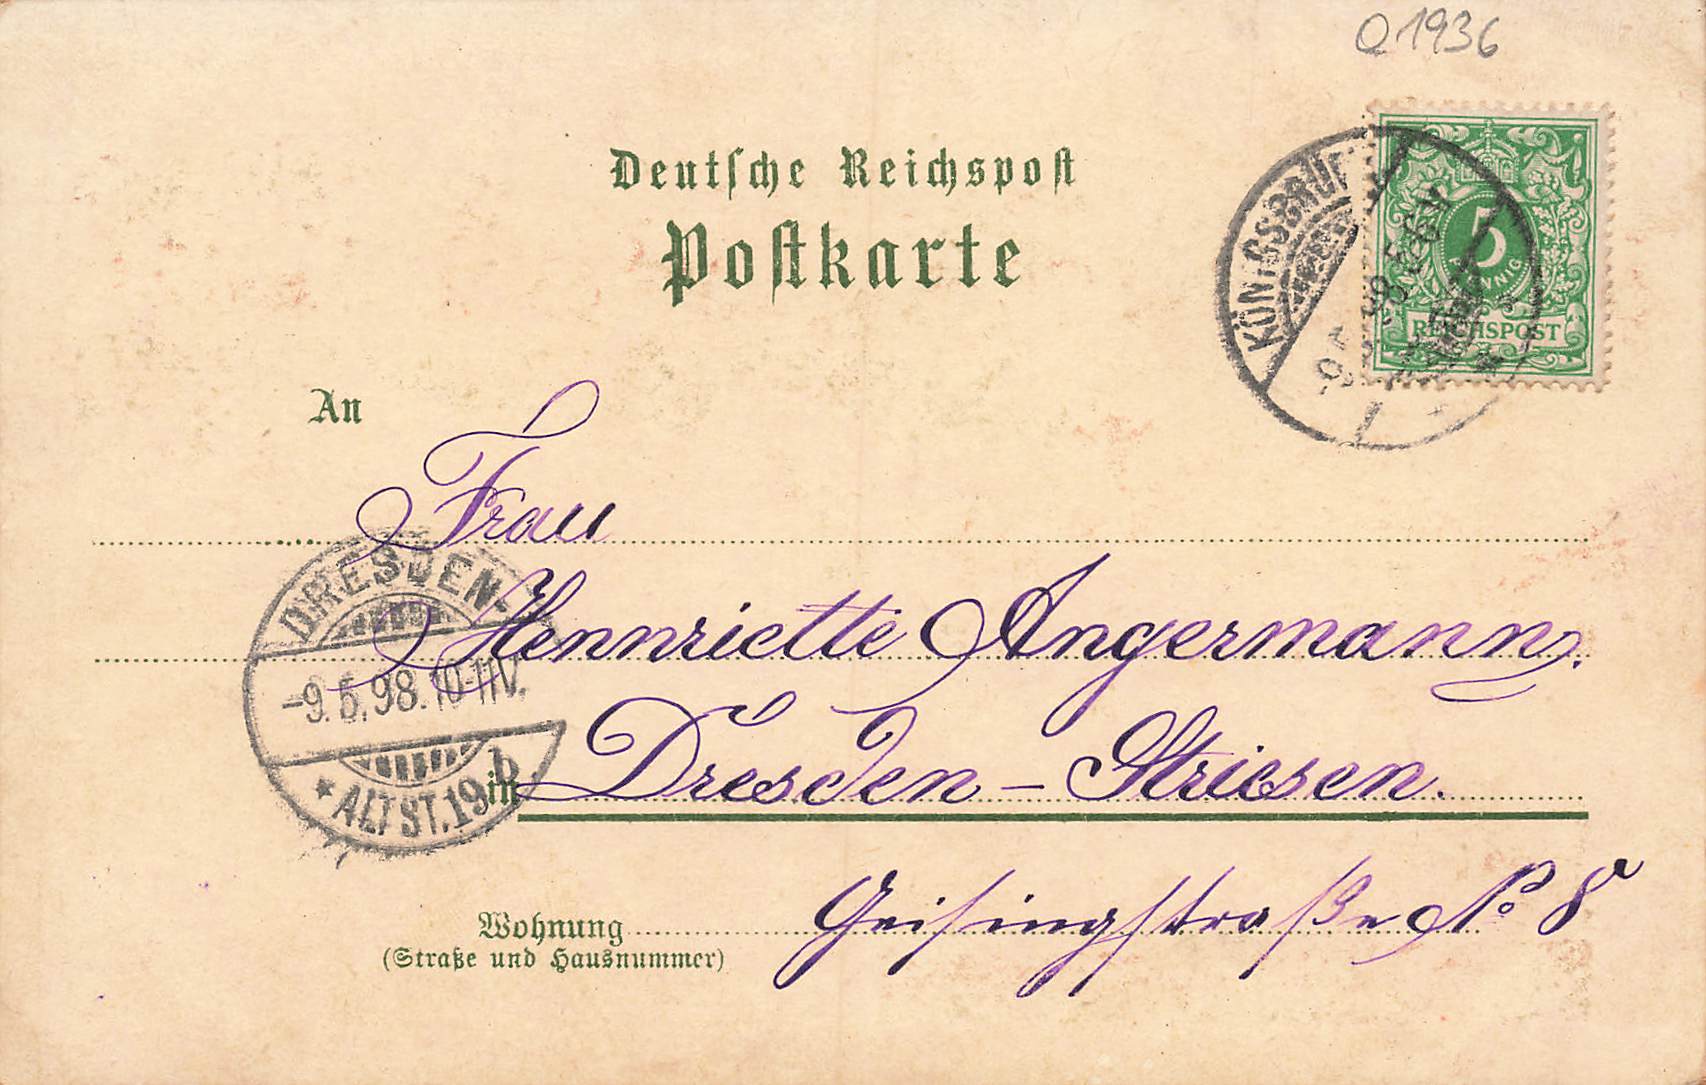 Q 1936
Deutsche Reichspost
Postkarte
5
PFENNIG
REICHSPOST
KÖNIGSBRÜ
An
Frau
Hennriette Angermann.
in Dresden - Striesen.
Geisingstraße No 8
Wohnung
(Straße und Hausnummer)
DRESDEN-
-9.5.98.10-11V.
* ALTST.19 b